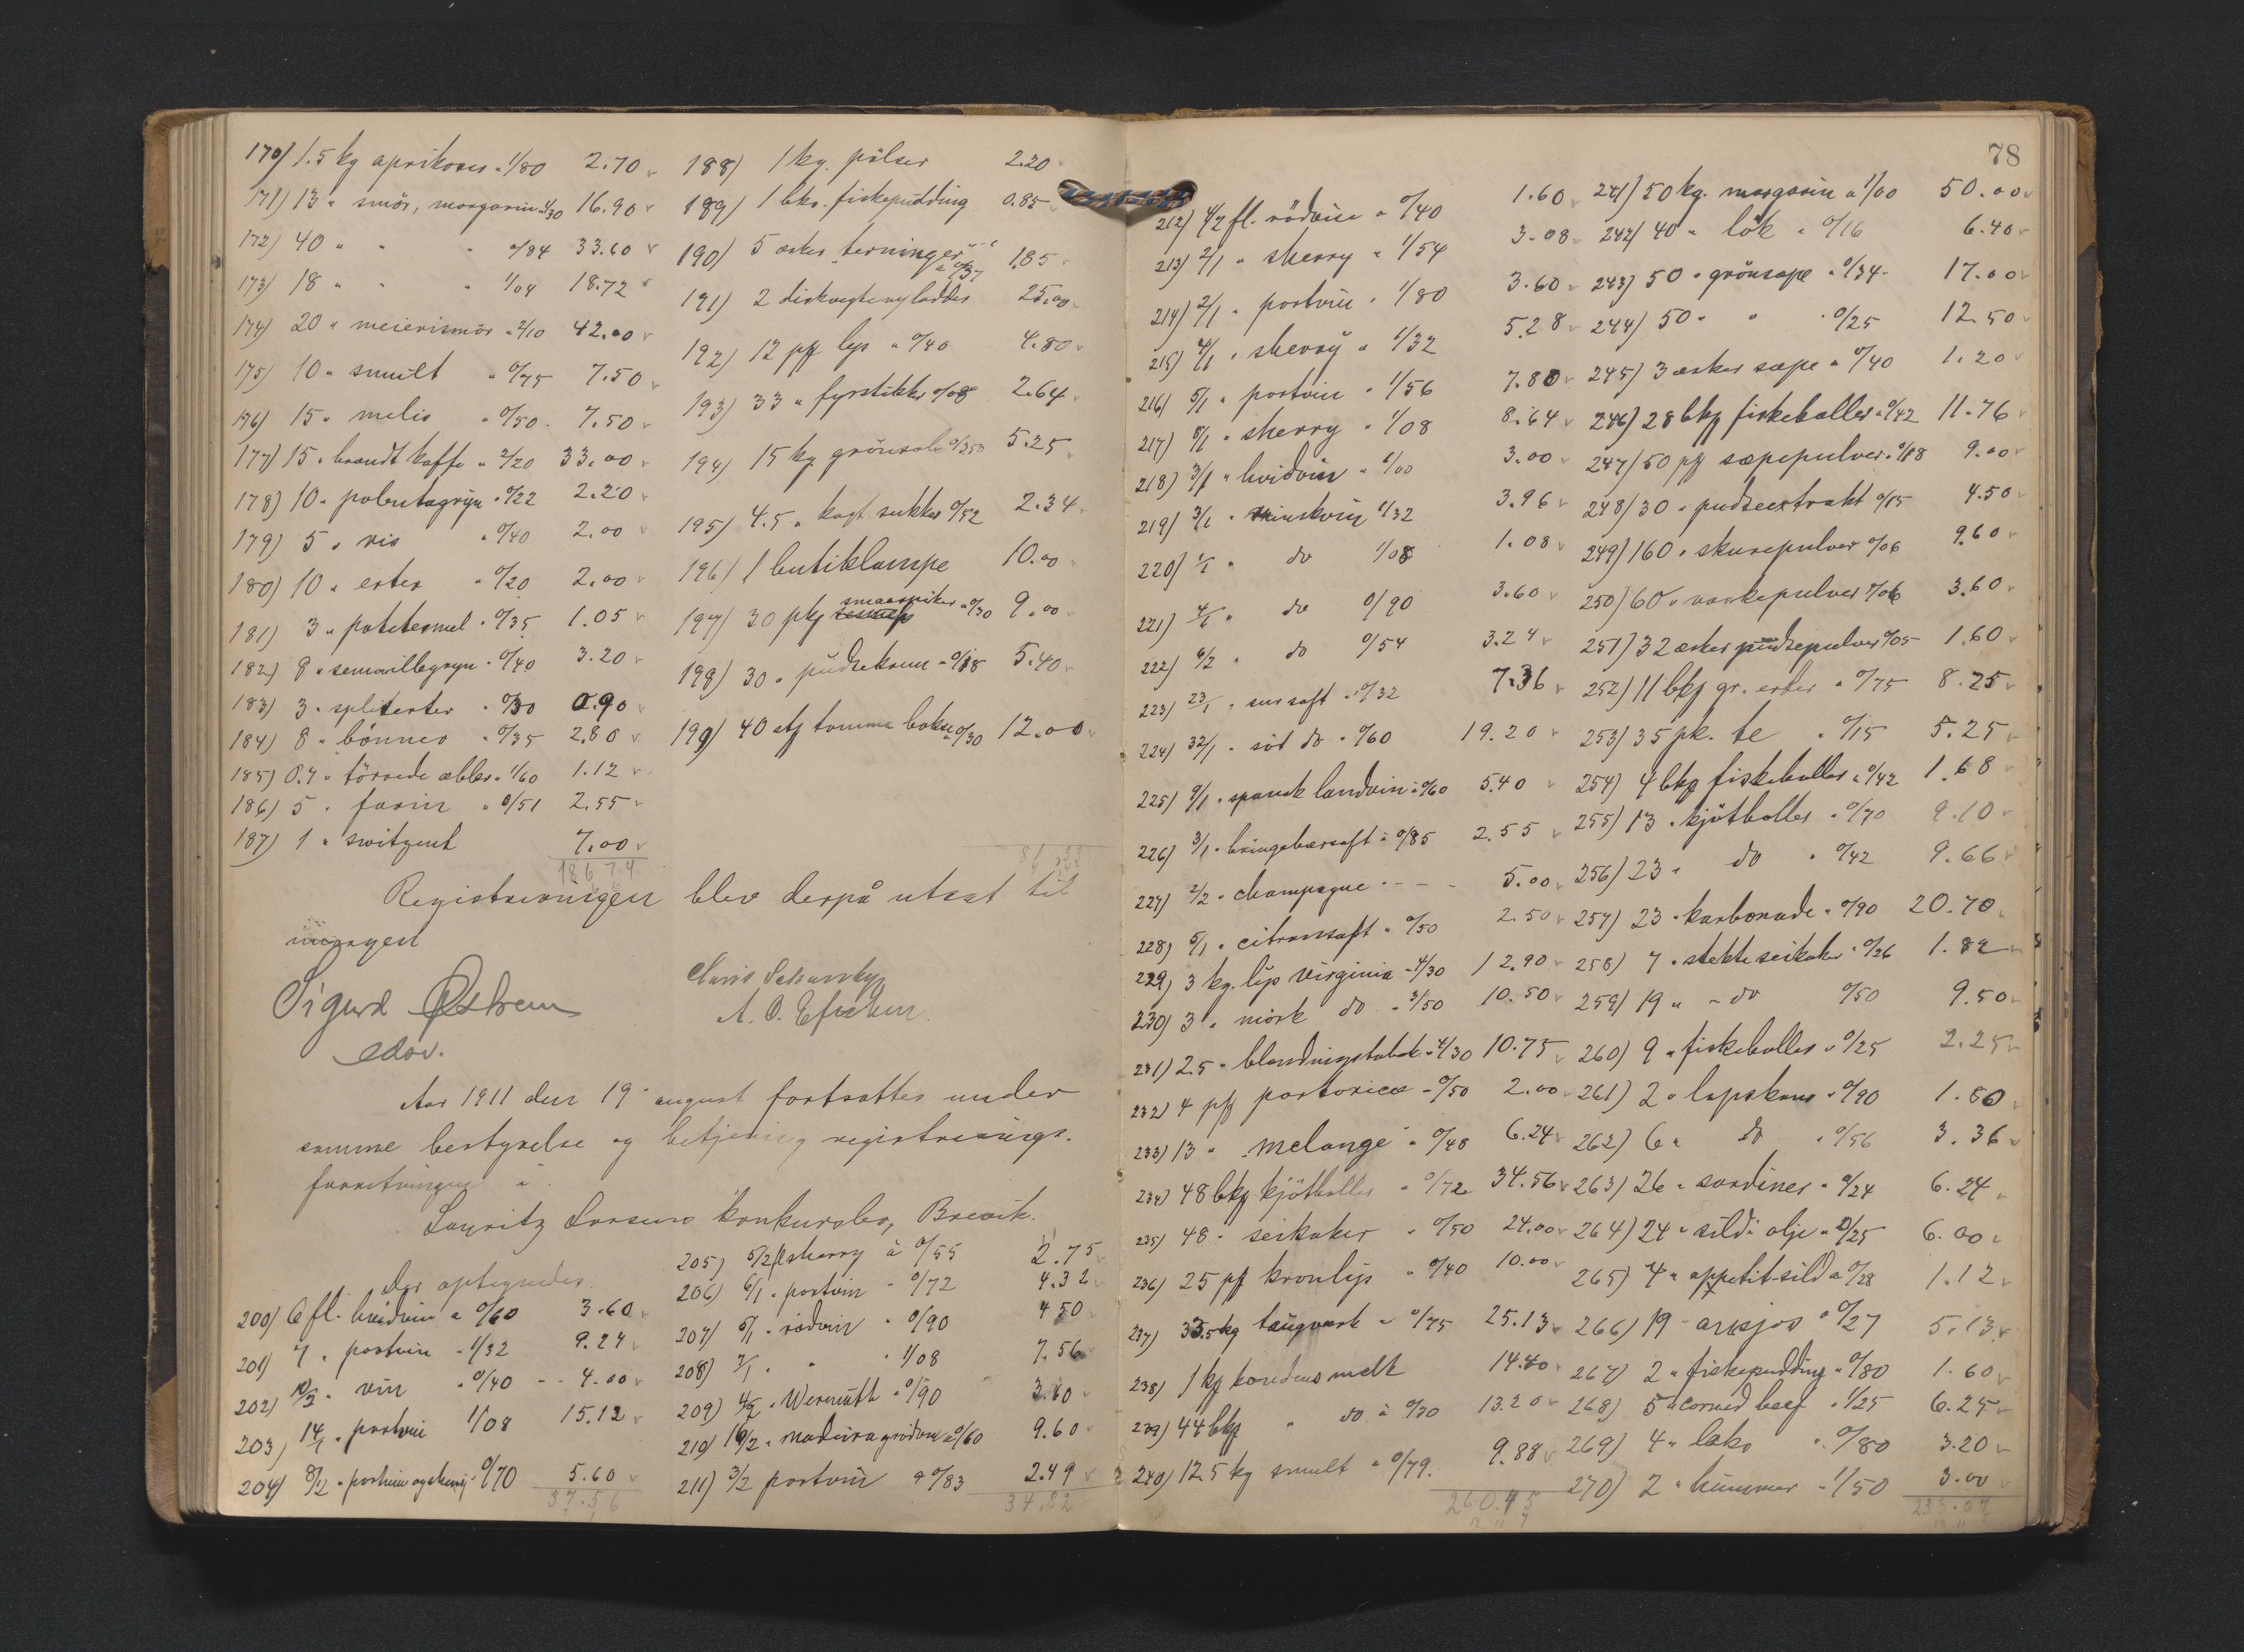 170) 1.5 kg aprikoser " 1/80 2.70
171) 13 " smör, margarin " 1/30 16.90
172) 40 " " " 0/84 33.60
173) 18 " " " 1/04 18.72
174) 20 " meierismör " 2/10 42.00
175) 10 " smult " 0/75 7.50
176) 15 " melis " 0/50 7.50
177) 15 " brændt kaffe " 2/20 33.00
178) 10 " polentagryn " 0/22 2.20
179) 5 " ris " 0/40 2.00
180) 10 " erter " 0/20 2.00
181) 3 " potetesmel " 0/35 1.05
182) 8 " semouillegryn " 0/40 3.20
183) 3 " spliterter " 0/30 0.90
184) 8 " bönner " 0/35 2.80
185) 0.7 " törrede æbler " 1/60 1.12
186) 5 " farin " 0/51 2.55
187) 1 " switzent 7.00
186.74
188) 1 kg. pölser 2.20
189) 1 bks. fiskepudding 0.85
190) 5 æsker terninger " 0/37 1.85
191) 2 diskvegtenylodder 25.00
192) 12 pk lys " 0/40 4.80
193) 33 " fyrstikker 0/08 2.64
194) 15 kg grönsåpe 0/350 5.25
195) 4.5 " kogt sukker 0/52 2.34
196) 1 butiklampe 10.00
197) 30 pkg smaaspiker " 0/30 9.00
198) 30 " pudsekrem " 0/18 5.40
199) 40 stk tomme bokser 0/30 12.00
Registreringen blev derpå utsat til
imorgen
Sigurd Østrem
edsv.
A. O. Efschen
Aar 1911 den 19 august fortsattes under
samme bestyrelse og betjening registrerings-
forretningen i
Lauritz Larsens konkursbo, Brevik.
Der optegnedes
200) 6 fl. hvidvin " 0/60 3.60
201) 7 " portvin " 1/32 9.24
202) 10/2 " vin " 0/40 4.00
203) 14/1 " portvin 1/08 15.12
204) 8/2 " portvin og sherry " 0/70 5.60
37.56
205) 5/2 fl sherry à 0/55 2.75
206) 6/1 " portvin " 0/72 4.32
207) 5/1 " rödvin " 0/90 4.50
208) 7/1 " " " 1/08 7.56
209) 4/2 " Wermuth " 0/90 3.60
210) 16/2 " madeira 0/60 9.60
211) 3/2 portvin " 0/83 2.49
34.82
78
212) 4/2 fl. rödvin " 0/40 1.60
213) 2/1 " sherry " 1/54 3.08
214) 2/1 " portvin " 1/80 3.60
215) 4/1 " sherry " 1/32 5.28
216) 5/1 " portvin " 1/56 7.80
217) 8/1 " sherry " 1/08 8.64
218) 3/1 " hvidvin " 1/00 3.00
219) 3/1 " rinskvin 1/32 3.96
220) 1/1 " do 1/08 1.08
221) 4/1 " do 0/90 3.60
222) 6/2 " do 0/54 3.24
223) 23/1 " sur saft " 0/32 7.36
224) 32/1 " söt do " 0/60 19.20
225) 9/1 " spansk landvin " 0/60 5.40
226) 3/1 " bringebærsaft " 0/85 2.55
227) 2/2 " champagne 5.00
228) 5/1 " citronsaft " 0/50 2.50
229) 3 kg. lys virginia " 4/30 12.90
230) 3 " mörk do " 3/50 10.50
231) 2.5 " blandningstobak " 4/30 10.75
232) 4 pk portorico " 0/50 2.00
233) 13 " melange " 0/48 6.24
234) 48 bks kjötboller " 0/72 34.56
235) 48 " seikaker " 0/50 24.00
236) 25 pk kronlys " 0/40 10.00
237) 33.5 kg taugverk " 0/75 25.13
238) 1 ks kondens melk 14.40
239) 44 bks " do à 0/30 13.20
240) 12.5 kg smult " 0/79 9.88
260.45
241) 50 kg. margarin à 1/00 50.00
242) 40 " lök " 0/16 6.40
243) 50 " grönsape " 0/34 17.00
244) 50 " " " 0/25 12.50
245) 3 æsker sæpe " 0/40 1.20
246) 28 bks fiskeboller " 0/42 11.76
247) 50 pk sæpepulver " 0/18 9.00
248) 30 " pudseextrakt 0/15 4.50
249) 160 " skurepulver 0/06 9.60
250) 60 " vaskepulver 0/06 3.60
251) 32 æsker pudsepulver 0/05 1.60
252) 11 bks gr. erter " 0/75 8.25
253) 35 pk. te " 0/15 5.25
254) 4 bks fiskeboller " 0/42 1.68
255) 13 " kjötboller " 0/70 9.10
256) 23 " do " 0/42 9.66
257) 23 " karbonade " 0/90 20.70
258) 7 " stekte seikaker " 0/26 1.82
259) 19 " " do 0/50 9.50
260) 9 " fiskeboller " 0/25 2.25
261) 2 " lapskaus " 0/90 1.80
262) 6 " do " 0/56 3.36
263) 26 " sardiner " 0/24 6.24
264) 24 " sild i olje " 0/25 6.00
265) 4 " appetit-sild a 0/28 1.12
266) 19 " ansjos " 0/27 5.13
267) 2 " fiskepudding " 0/80 1.60
268) 5 " corned beef " 1/25 6.25
269) 4 " laks " 0/80 3.20
270) 2 " hummer " 1/50 3.00
233.07